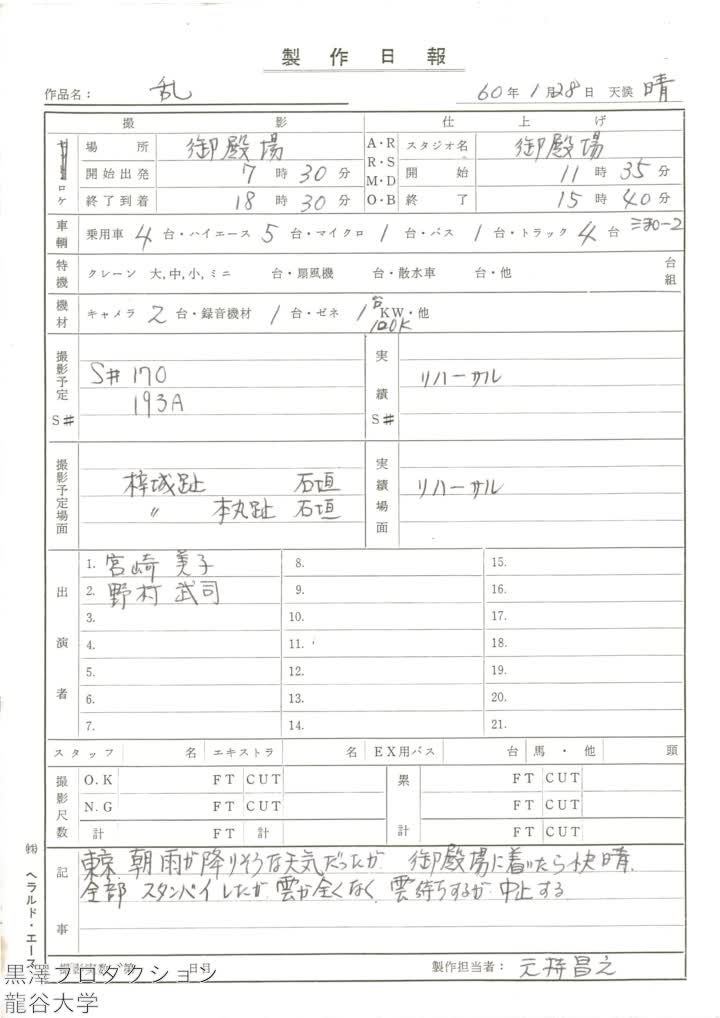 製作日報
作品名： 乱 60年1月28日 天候 晴
撮影 仕上げ
ロケ 場所 御殿場 A・R R・S M・D O・B スタジオ名 御殿場
開始出発 7時30分 開始 11時35分
終了到着 18時30分 終了 15時40分
車輌 乗用車 4台・ハイエース 5台・マイクロ 1台・バス 1台・トラック 4台
特機 クレーン 大,中,小,ミニ 台・扇風機 台・散水車 台・他 台組
機材 キャメラ 2台・録音機材 1台・ゼネ 1台KW・他
120K
撮影予定 S# S#170 実績 S# リハーサル
193A
撮影予定場面 梓城趾 石垣 実績場面 リハーサル
〃 本丸趾 石垣
出演者
1. 宮崎 美子 8. 15.
2. 野村 武司 9. 16.
3. 10. 17.
4. 11. 18.
5. 12. 19.
6. 13. 20.
7. 14. 21.
スタッフ 名 エキストラ 名 EX用バス 台 馬・他 頭
撮影尺数 O.K FT CUT 累計 FT CUT
N.G FT CUT FT CUT
計 FT 計 FT CUT
記事 東京 朝 雨が降りそうな天気だったが 御殿場に着いたら快晴.
全部 スタンバイしたが 雲が全くなく 雲待ちするが 中止する
撮影実数 第 日目 製作担当者： 元持昌之
㈱ ヘラルド・エース
黒澤プロダクション
龍谷大学